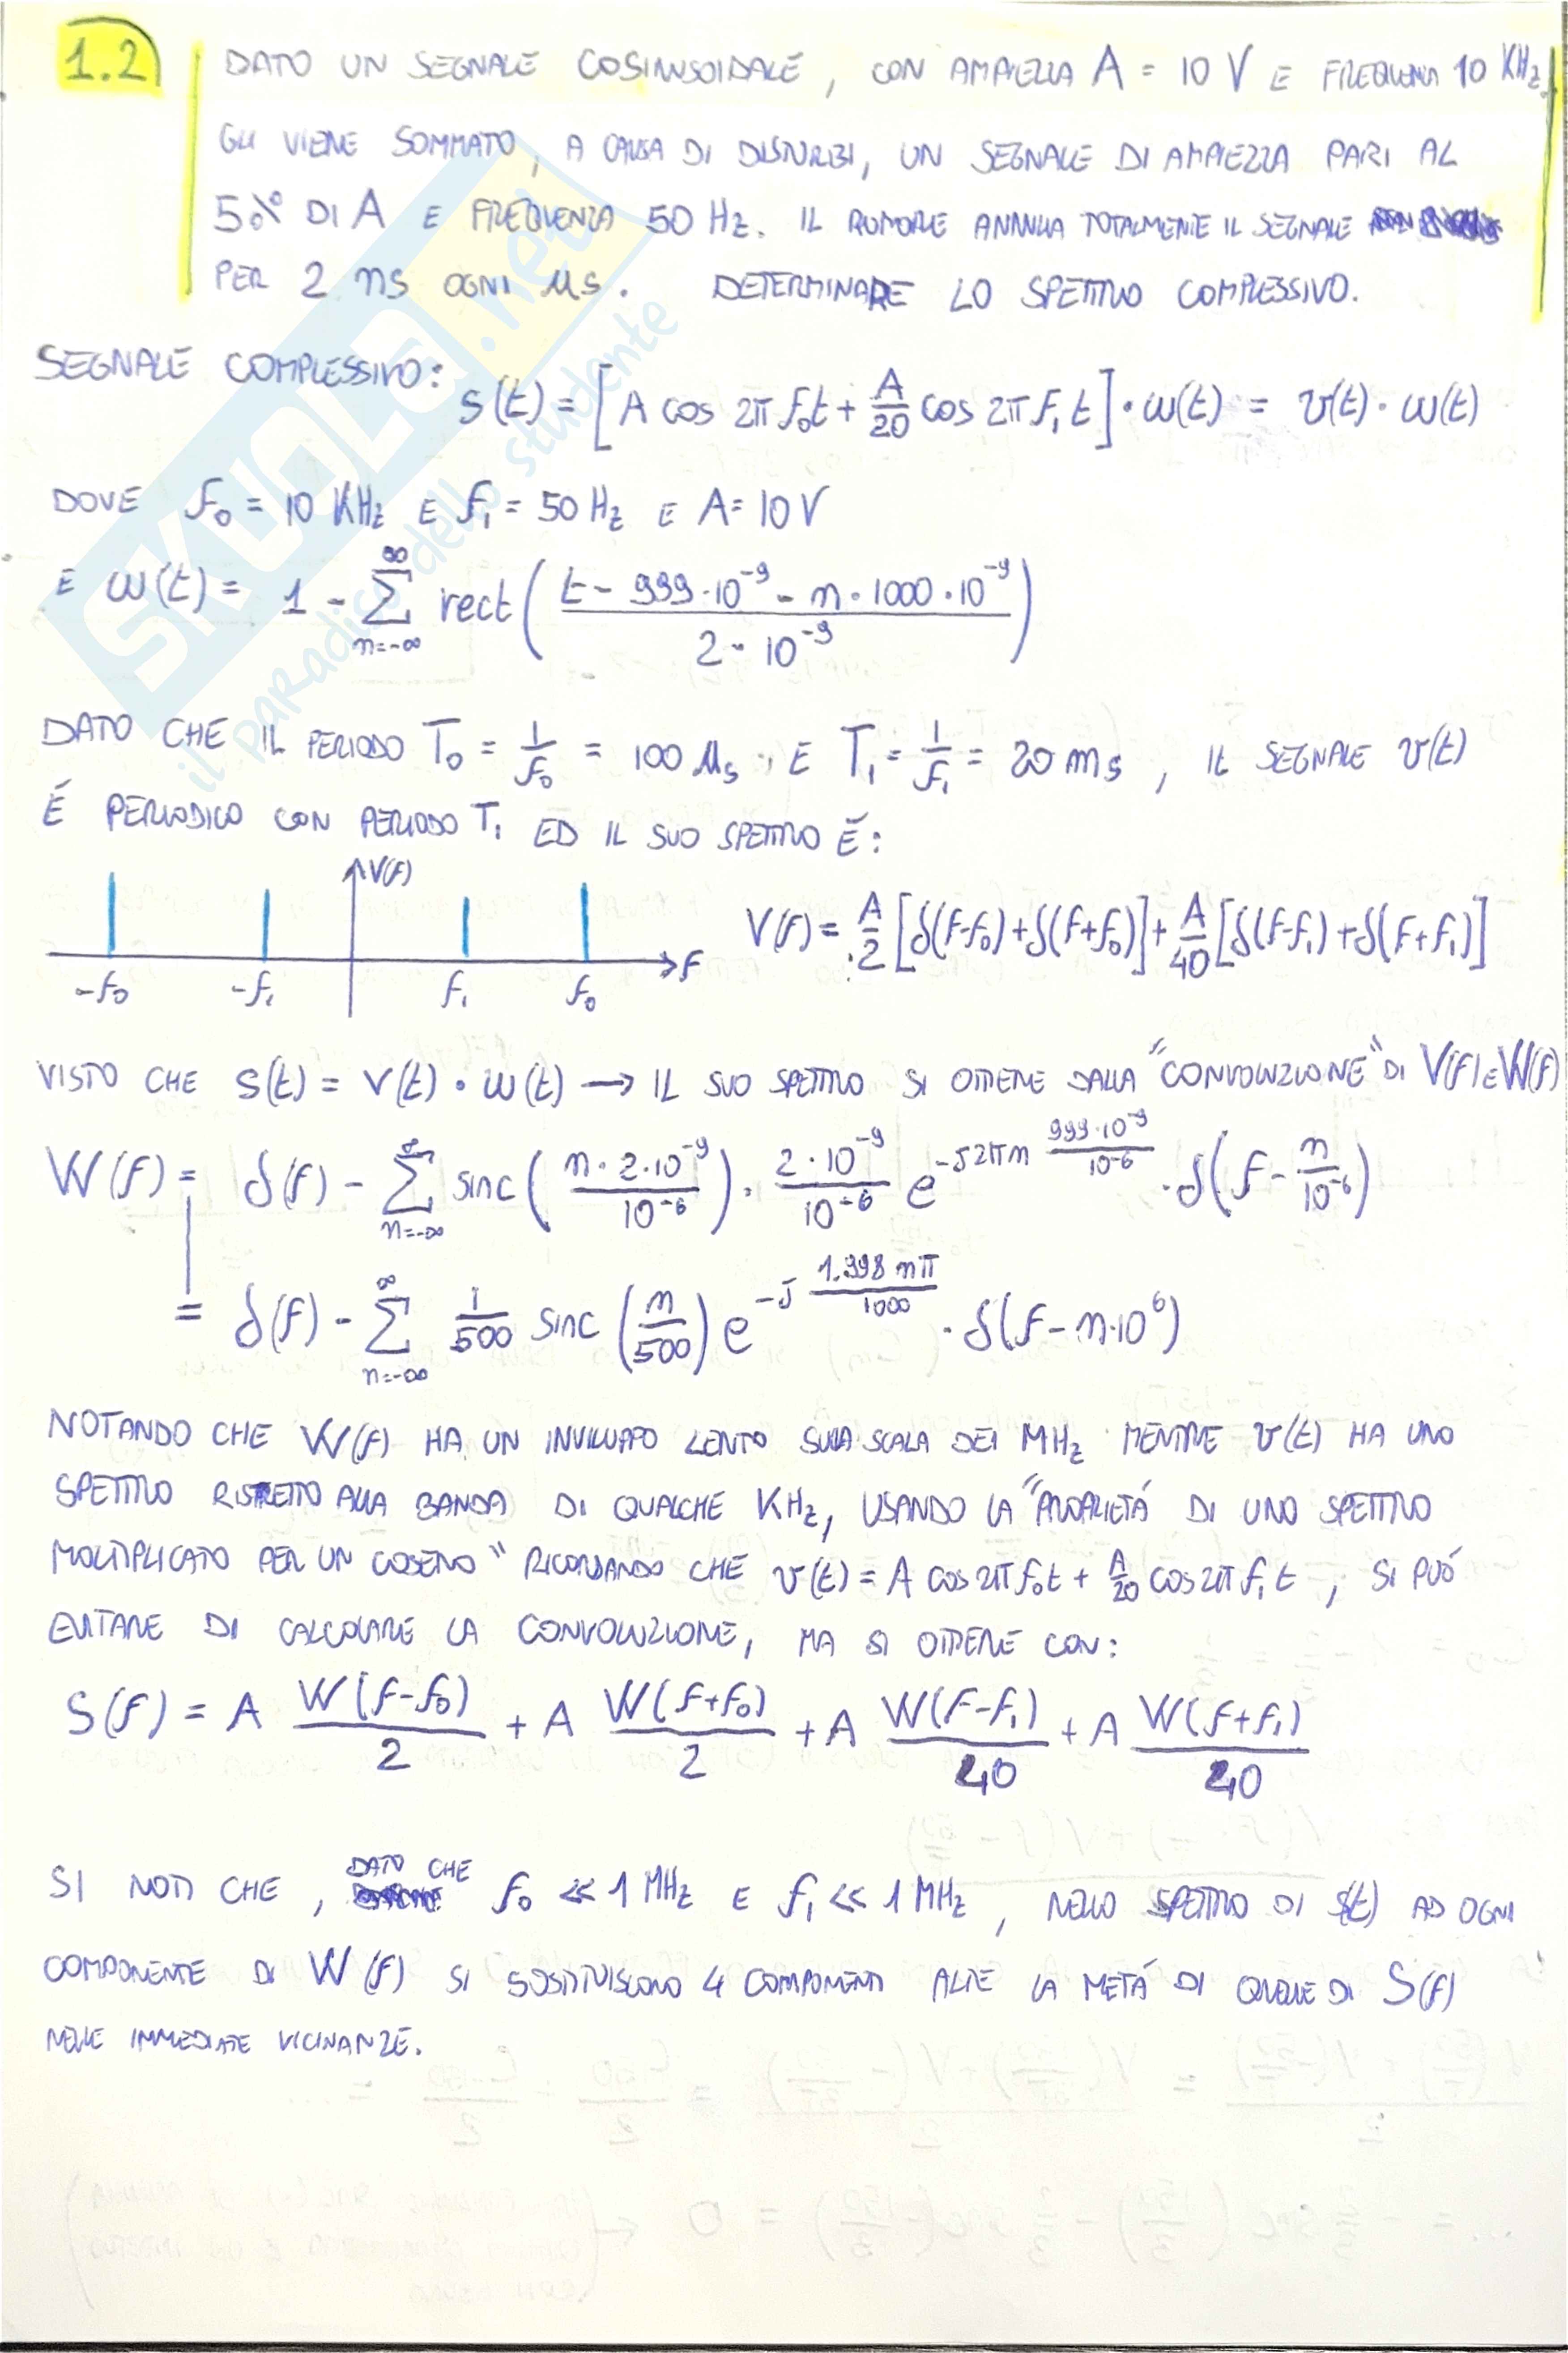 1.2 DATO UN SEGNALE COSINUSOIDALE, CON AMPIEZZA A = 10 V E FREQUENZA 10 KHz.
GLI VIENE SOMMATO, A CAUSA DI DISTURBI, UN SEGNALE DI AMPIEZZA PARI AL
5% DI A E FREQUENZA 50 Hz. IL RUMORE ANNULLA TOTALMENTE IL SEGNALE
PER 2 ns OGNI μs. DETERMINARE LO SPETTRO COMPLESSIVO.
SEGNALE COMPLESSIVO: s(t) = [A cos 2π f₀t + A/20 cos 2π f₁t] · w(t) = v(t) · w(t)
DOVE f₀ = 10 KHz E f₁ = 50 Hz E A = 10 V
E w(t) = 1 - Σ_{n=-∞}^{∞} rect((t - 999·10⁻⁹ - n·1000·10⁻⁹)/(2·10⁻⁹))
DATO CHE IL PERIODO T₀ = 1/f₀ = 100 μs, E T₁ = 1/f₁ = 20 ms, IL SEGNALE v(t)
É PERIODICO CON PERIODO T₁ ED IL SUO SPETTRO É:
V(f)
-f₀ -f₁ f₁ f₀ f
V(f) = A/2 [δ(f-f₀) + δ(f+f₀)] + A/40 [δ(f-f₁) + δ(f+f₁)]
VISTO CHE s(t) = v(t) · w(t) → IL SUO SPETTRO SI OTTIENE DALLA "CONVOLUZIONE" DI V(f) E W(f)
W(f) = δ(f) - Σ_{n=-∞}^{∞} sinc((n·2·10⁻⁹)/10⁻⁶) · (2·10⁻⁹)/10⁻⁶ e^{-j2πn (999·10⁻⁹)/10⁻⁶} · δ(f - n/10⁻⁶)
= δ(f) - Σ_{n=-∞}^{∞} 1/500 sinc(n/500) e^{-j 1.998 nπ/1000} · δ(f - n·10⁶)
NOTANDO CHE W(f) HA UN INVILUPPO LENTO SULLA SCALA DEI MHz MENTRE v(t) HA UNO
SPETTRO RISTRETTO ALLA BANDA DI QUALCHE KHz, USANDO LA "PROPRIETÁ DI UNO SPETTRO
MOLTIPLICATO PER UN COSENO" RICORDANDO CHE v(t) = A cos 2π f₀t + A/20 cos 2π f₁t, SI PUÓ
EVITARE DI CALCOLARE LA CONVOLUZIONE, MA SI OTTIENE CON:
S(f) = A W(f-f₀)/2 + A W(f+f₀)/2 + A W(f-f₁)/40 + A W(f+f₁)/40
SI NOTI CHE, DATO CHE f₀ << 1 MHz E f₁ << 1 MHz, NELLO SPETTRO DI s(t) AD OGNI
COMPONENTE DI W(f) SI SOSTITUISCONO 4 COMPONENTI ALTE LA METÁ DI QUELLE DI S(f)
NELLE IMMEDIATE VICINANZE.
SKUOLA.net
il paradiso dello studente